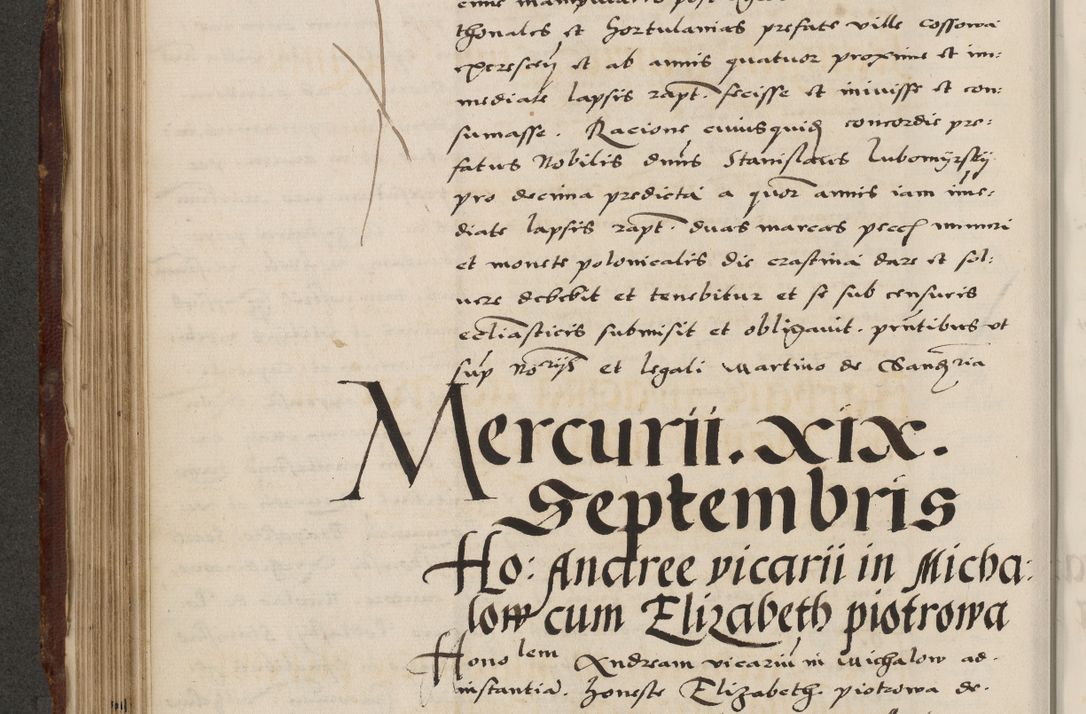 thonales et hortulanias prefate ville cossowa
excrescen et ab annis quatuor proxime et im:
mediate lapsis rapt. fecisse et inivisse et con:
sumasse. Racione cuiusquid concordie pre:
fatus Nobilis dnus Stanislaus Lubomyrsky
pro decima predicta a quor annis iam ime:
diate lapsis rapt. duas marcas pecc numeri
et monete polonicalis die crastina dare et sol:
vere debebit et tenebitur et se sub censuris
eccliasticis submisit et obligavit. pntibus ut
sup norys et legali Martino de Sandzria
Mercurii. xix.
Septembris
Ho: Andree vicarii in Micha:
low cum Elizabeth piotrowa
Honolem Andream vicariu in Michalow ad
instantia. honeste Elizabeth. piotrowa de.